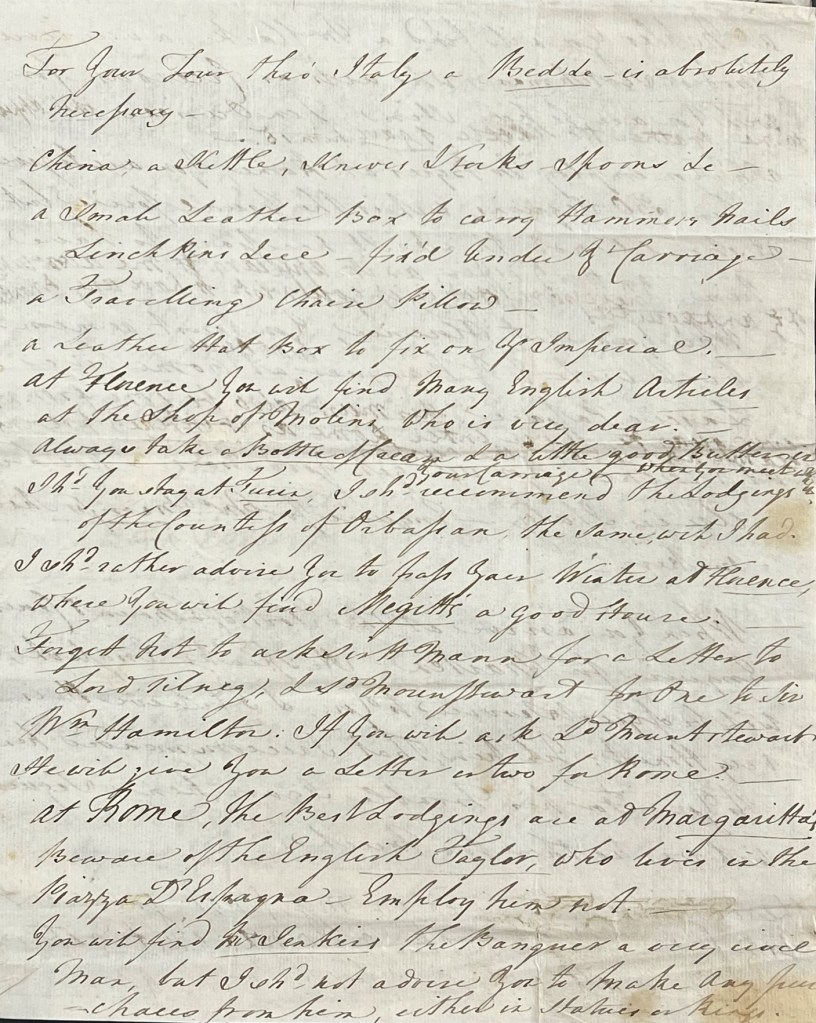 For Your Tour thro' Italy a Bedde - is absolutely
necessary -
China, a Kettle, Knives & forks - Spoons &c -
a Small Leather Box to carry Hammers, Nails
Linch Pins &ccc - fix'd Under ye Carriage -
a Travelling Chaise Pillow -
a Leather Hat Box to fix on ye Imperial. -
at Florence You will find Many English Articles
at the Shop of Molini who is very dear. -
Always take a Bottle of Cream & a little good Butter in
your Carriage when you meet
I shd. You stay at Turin, I shd. recommend the Lodgings
of the Countess of Orbassan, the same wch I had.
I shd. rather advise You to pass Your Winter at Florence,
where You will find Megitt's a good House. -
Forget not to ask Sir H Mann for a Letter to
Lord Tilney, & Ld Mountstewart for One to Sir
Wm Hamilton: If You will ask Ld Mountstewart
He will give You a Letter or two for Rome. -
at Rome, the Best Lodgings are at Margaritta's
Beware of the English Taylor, who lives in the
Piazza D'Espagna - Employ him not. -
You will find Mr Jenkins the Banquer a very civil
Man, but I shd. not advise You to make Any pur
-chaces from him, either in Statues or Rings.